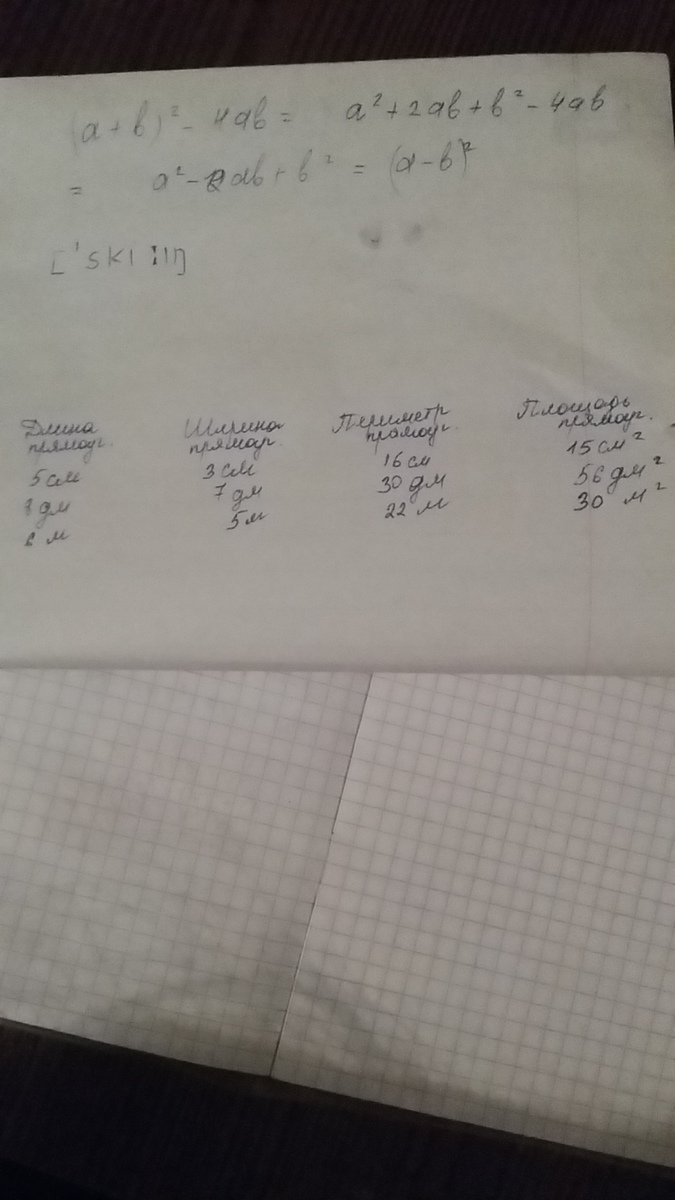 (a+b)² - 4ab = a² + 2ab + b² - 4ab
= a² - 2ab + b² = (a-b)²
['skI:IŊ
Длина прямоуг. Ширина прямоуг. Периметр прямоуг. Площадь прямоуг.
5 см 3 см 16 см 15 см²
8 дм 7 дм 30 дм 56 дм²
6 м 5 м 22 м 30 м²